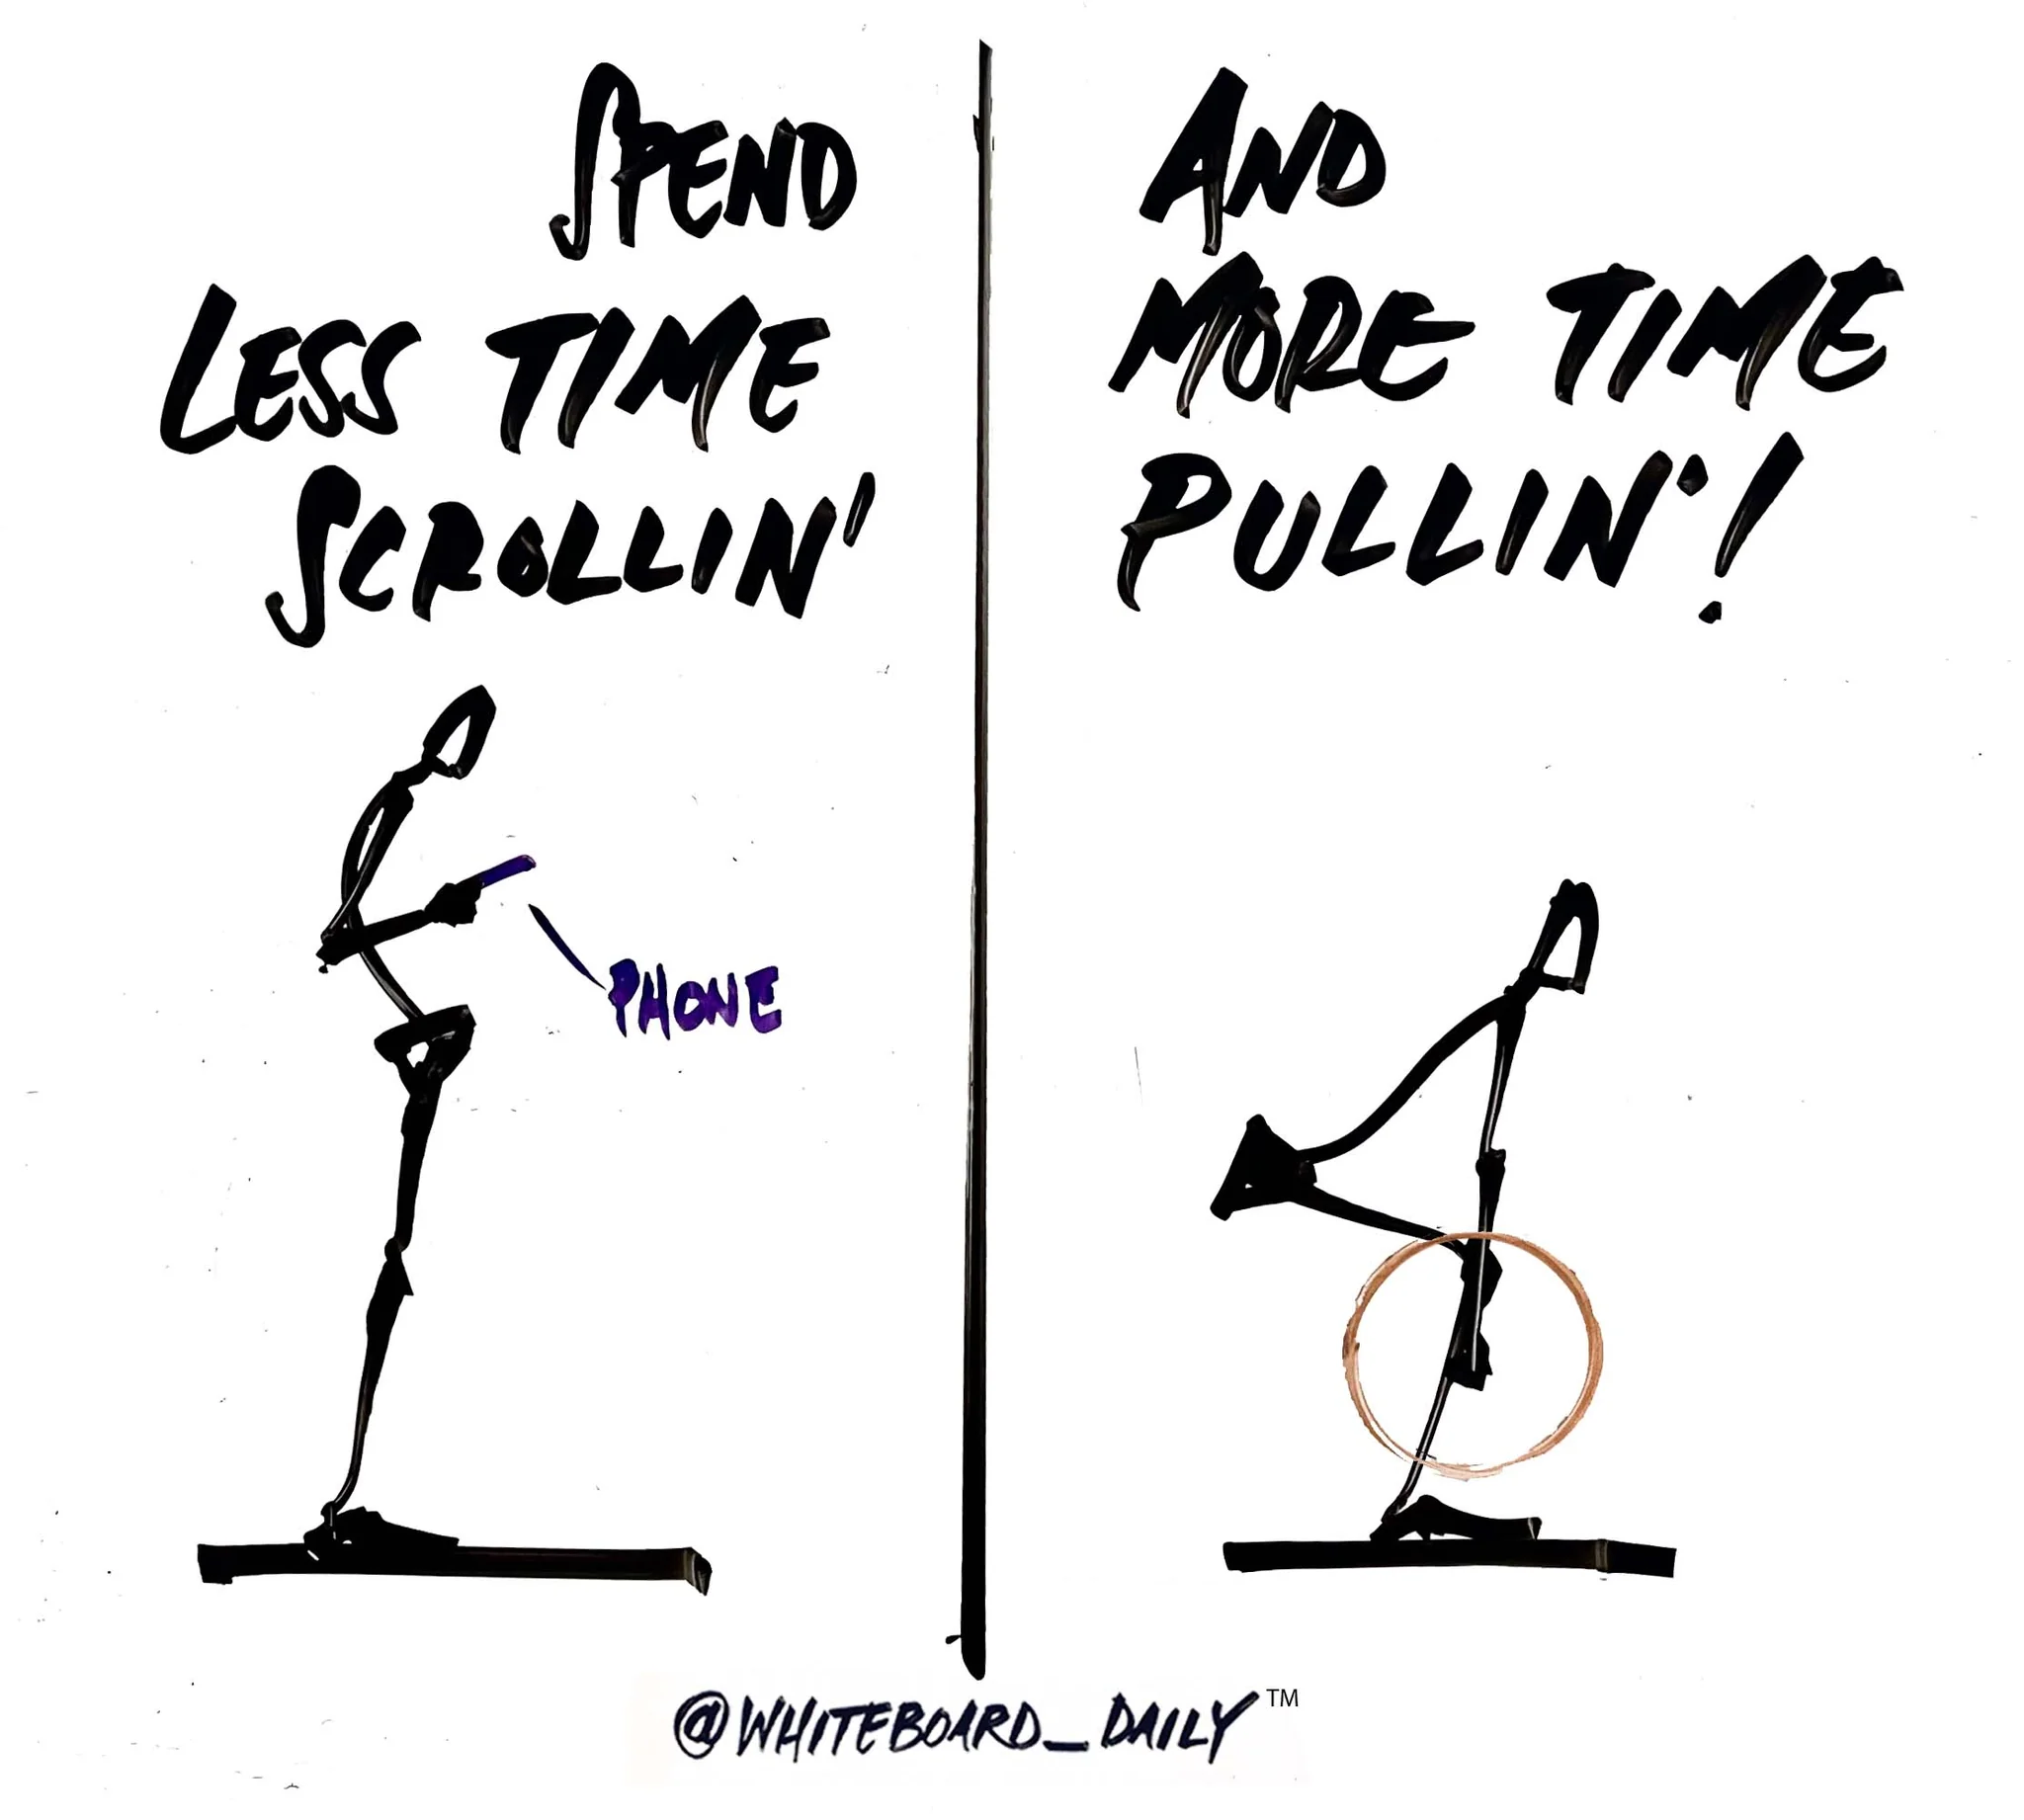 SPEND
LESS TIME
SCROLLIN'
PHONE
AND
MORE TIME
PULLIN'!
@WHITEBOARD_DAILY™